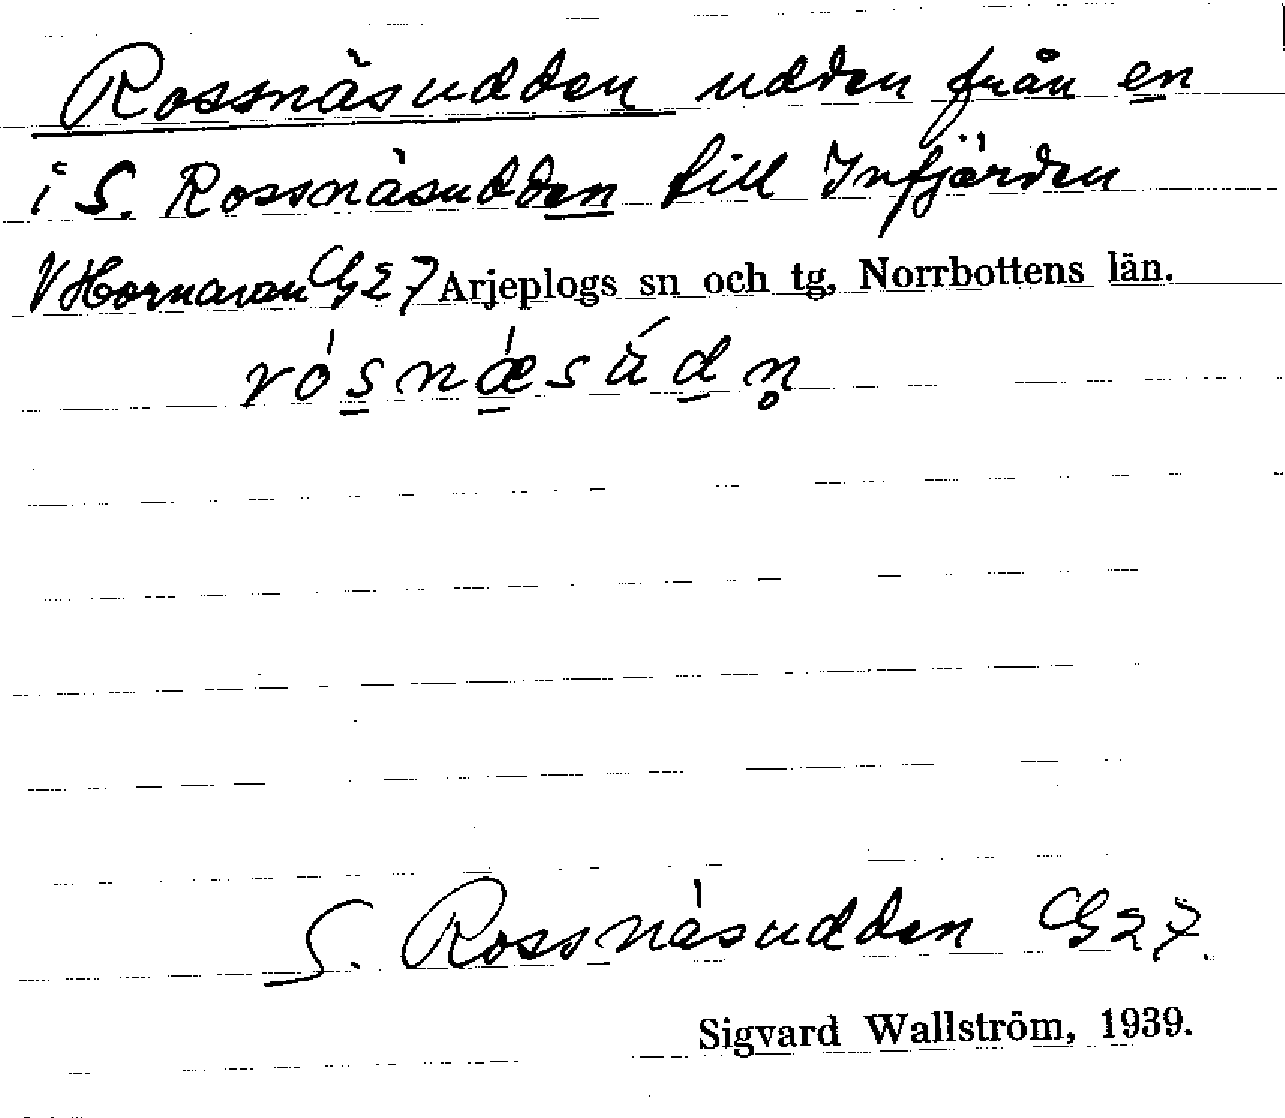 Rossnäsudden udden från en
i S. Rossnäsudden till Infjärden
V Hornavan G27 Arjeplogs sn och tg, Norrbottens län.
rósnǽsúdn̥
S. Rossnäsudden G27.
Sigvard Wallström, 1939.